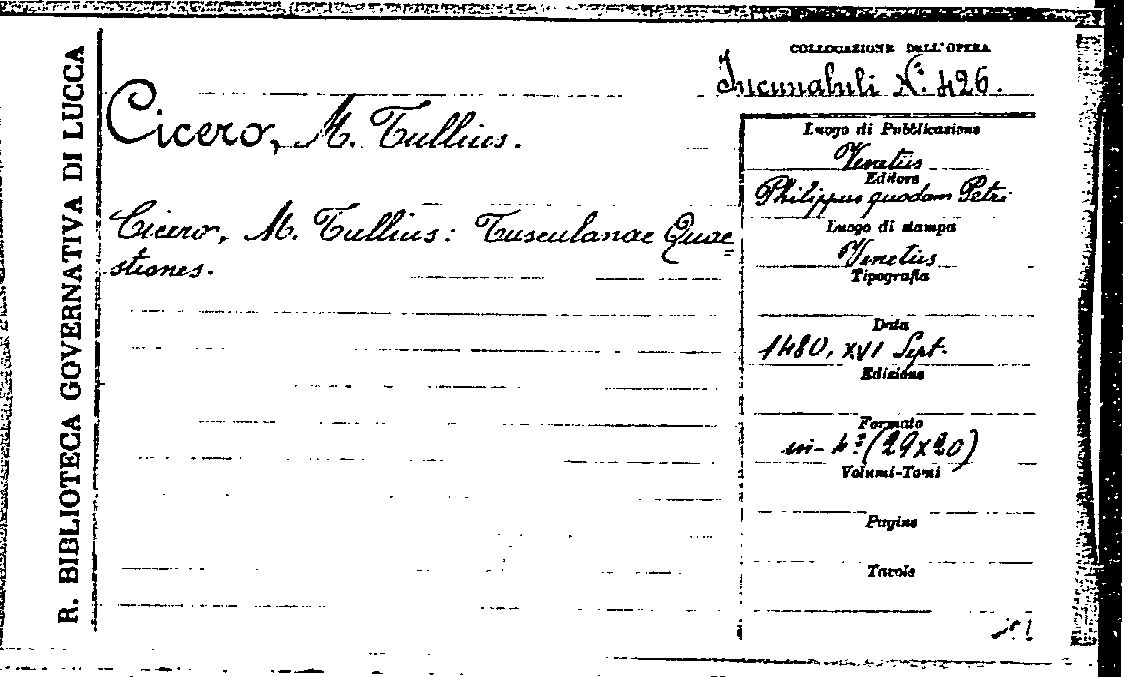 R. BIBLIOTECA GOVERNATIVA DI LUCCA
COLLOCAZIONE DELL'OPERA
Incunabuli N.º 426.
Cicero, M. Tullius.
Cicero, M. Tullius: Tusculanae Quae=
stiones.
Luogo di Pubblicazione
Venetiis
Editore
Philippus quodam Petri
Luogo di stampa
Venetiis
Tipografia
Data
1480, XVI Sept.
Edizione
Formato
in-4º (29x20)
Volumi-Tomi
Pagine
Tavole